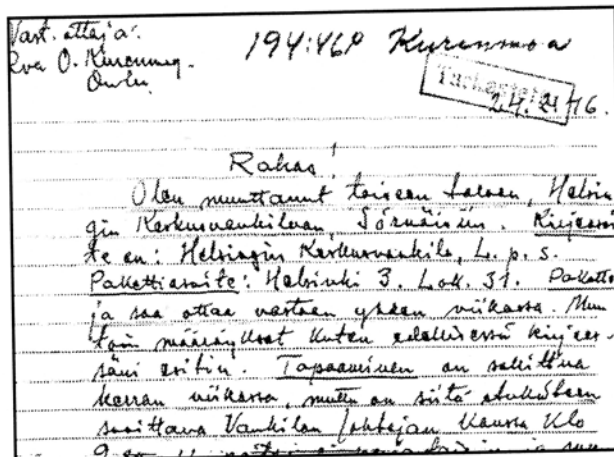 Vast. ottaja:
194:46P Kurenmoa
Rva O. Kurenmoa.
Oulu.
Tarkastettu
24. 2. 46.
Rakas!
Olen muuttanut toiseen taloon, Helsin
gin Keskusvankilaan, Sörnäisiin. Kirjeosoi
te on: Helsingin Keskusvankila, L. p. s.
Pakettiosoite: Helsinki 3. Lok. 31. Paketti
ja saa ottaa vastaan yhden viikossa. Muu
toin määräykset kuten edellisessä kirjees-
säni esitin. Tapaaminen on sallittua
kerran viikossa, mutta on siitä etukäteen
sovittava Vankilan Johtajan kanssa klo